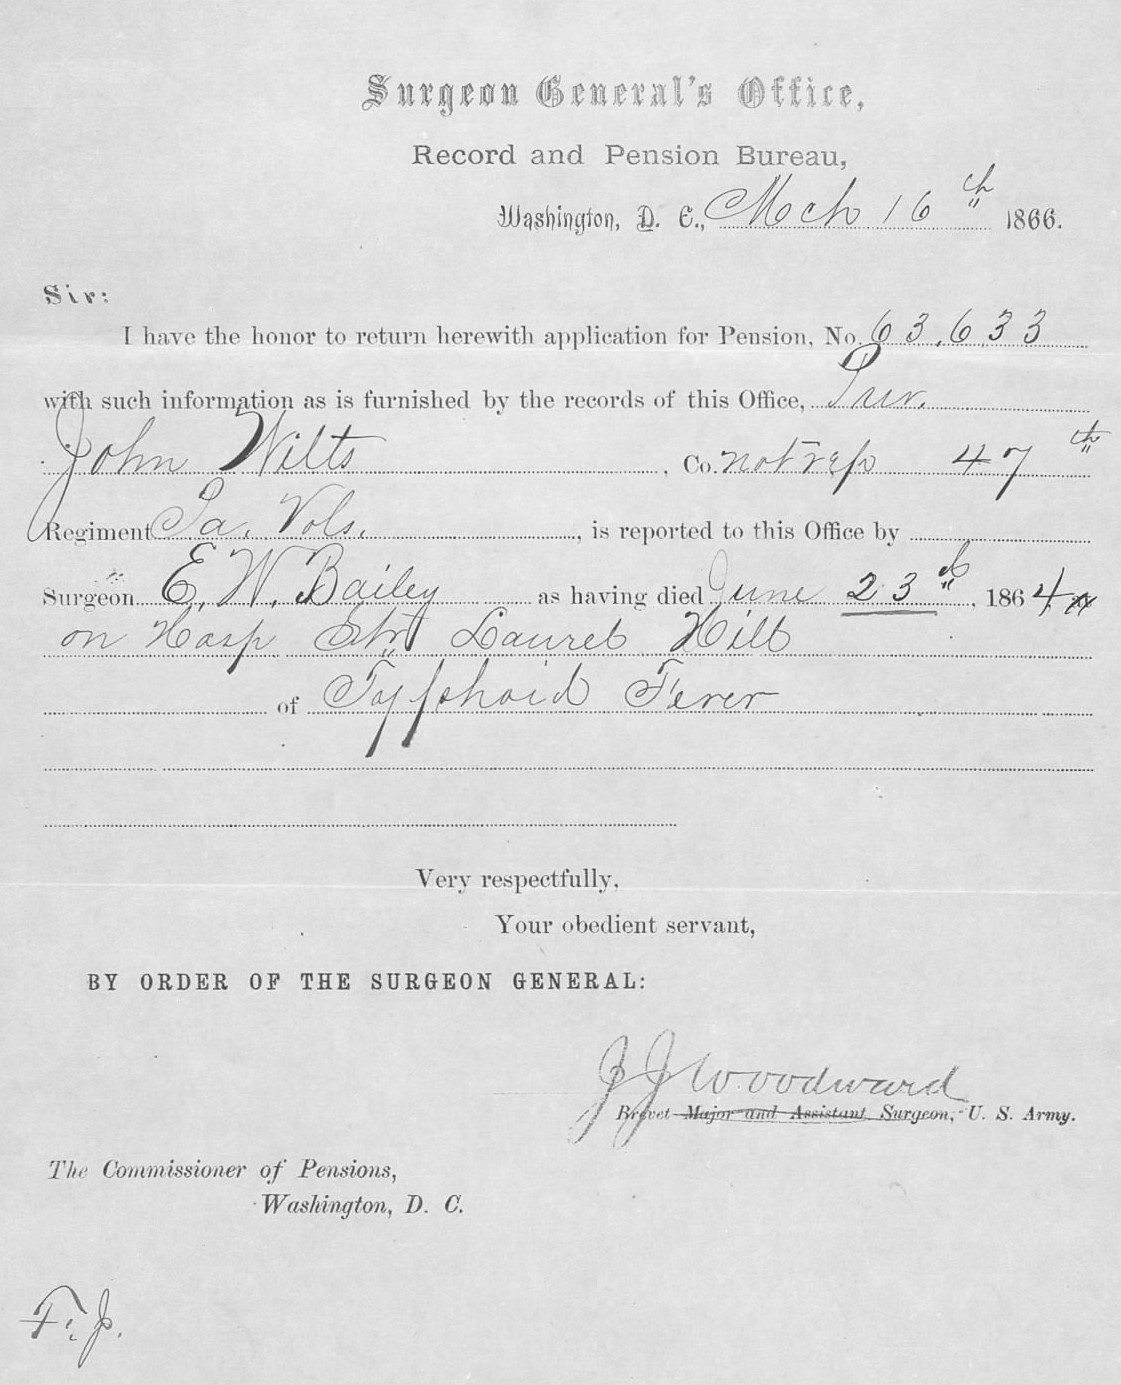 Surgeon General's Office,
Record and Pension Bureau,
Washington, D. C., Mch 16th 1866.
Sir:
I have the honor to return herewith application for Pension, No. 63,633
with such information as is furnished by the records of this Office,
John Wilts, Co. not rep 47th
Regiment Pa. Vols., is reported to this Office by
Surgeon E. W. Bailey as having died June 23d, 1864
on Hosp Str Laurel Hill
of Typhoid Fever
Very respectfully,
Your obedient servant,
BY ORDER OF THE SURGEON GENERAL:
J J Woodward
Brevet Major and Assistant Surgeon, U. S. Army.
The Commissioner of Pensions,
Washington, D. C.
F. J.